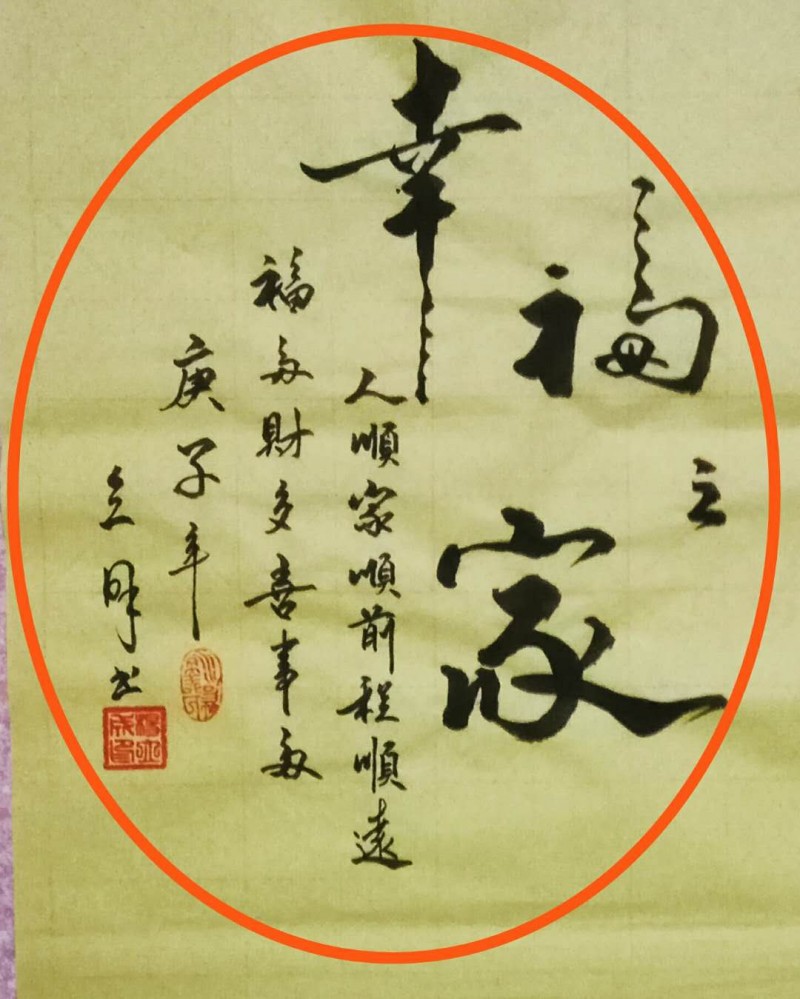 幸福之家
人順家順前程順遠
福多財多喜事多
庚子年
立 书